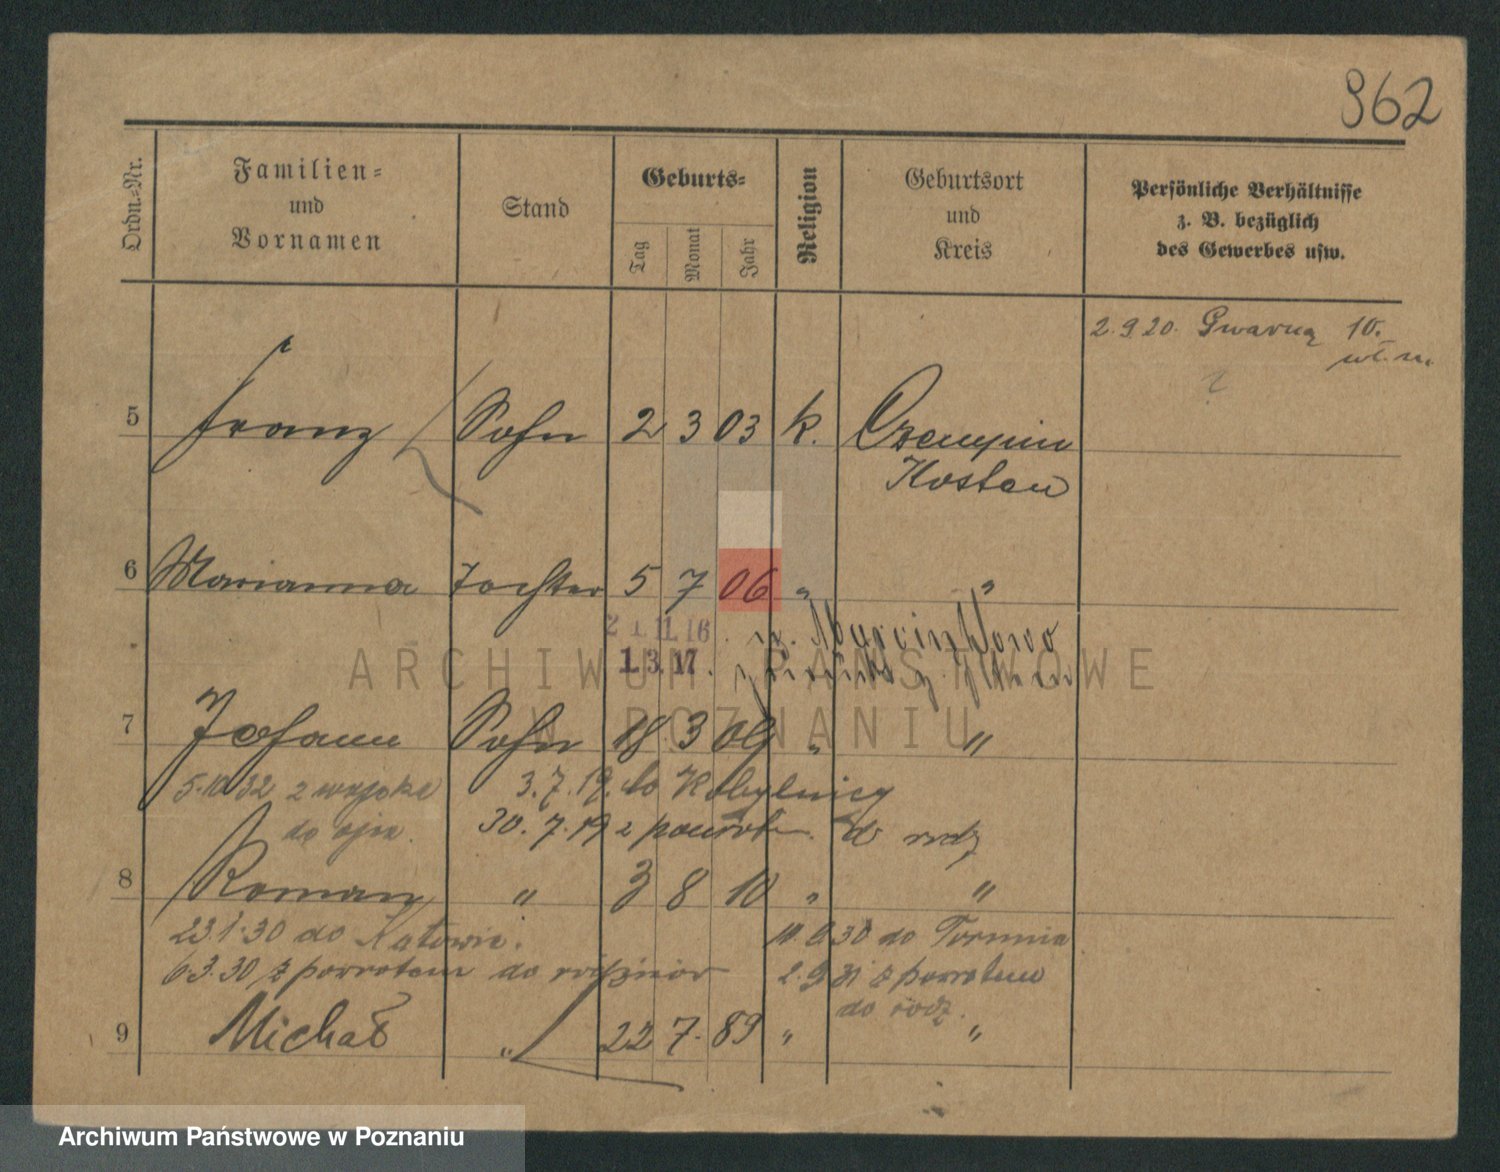 962
Ordn.-Nr.
Familien-
und
Vornamen
Stand
Geburts-
Tag
Monat
Jahr
Religion
Geburtsort
und
Kreis
Persönliche Verhältnisse
z. B. bezüglich
des Gewerbes usw.
2.9.20. Gwarna 10.
5 Franz Sohn 2 3 03 k. Czempin
Kosten
6 Marianna Tochter 5 7 06 " "
21.11.16
1.3.17.
ARCHIWUM PAŃSTWOWE
W POZNANIU
7 Johann Sohn 18 3 09 " "
5.10.32 z wojska 3.7.19. do Kobylnicy
do ojca. 30.7.19 z powrotem do rodz
8 Roman " 3 8 10 " "
23.1.30 do Katowic. do Torunia
6.3.30 z powrotem do rodziców 2.9.31 z powrotem
do rodz.
9 Michał " 22 7. 89 " "
Archiwum Państwowe w Poznaniu